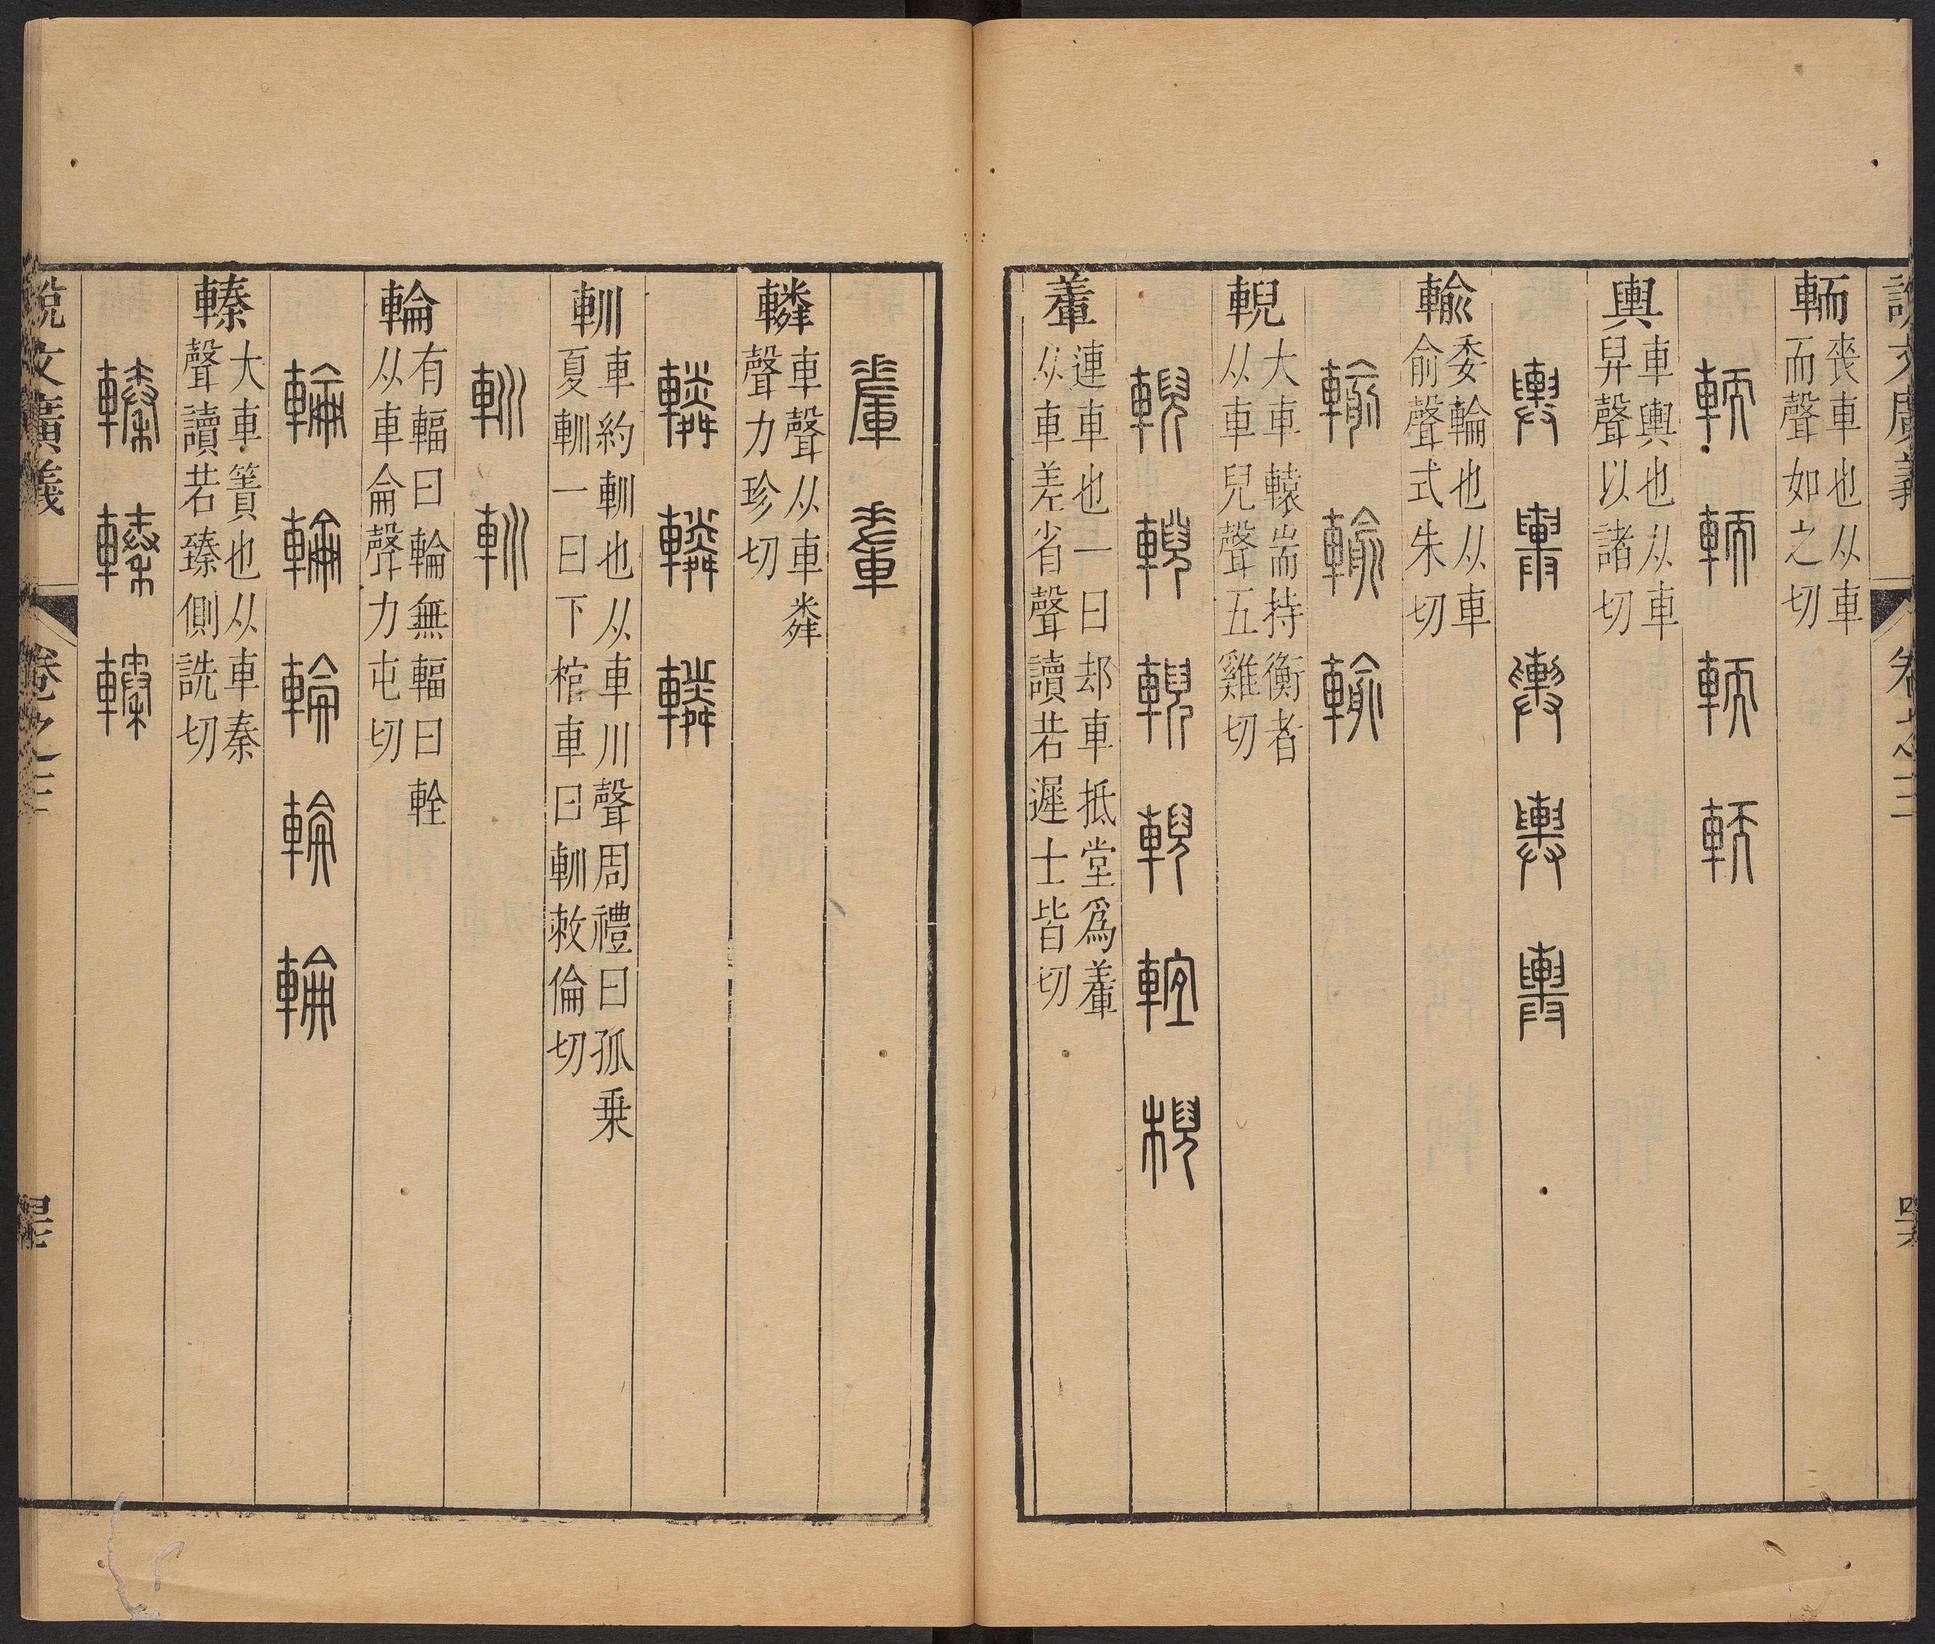 說文廣義
卷之三
輀
喪車也从車
而聲如之切
輀輀輀輀
輿
車輿也从車
舁聲以諸切
輿輿輿輿輿
輸
委輪也从車
俞聲式朱切
輸輸輸
輗
大車轅耑持衡者
从車兒聲五雞切
輗輗輗輗輨棿
𨍢
連車也一曰却車抵堂爲𨍢
从車差省聲讀若遲士皆切
轔
車聲从車粦
聲力珍切
轔轔轔
軕
車約軕也从車川聲周禮曰孤乗
夏軕一曰下棺車曰軕敕倫切
輪
有輻曰輪無輻曰輇
从車侖聲力屯切
輪輪輪輪輪
轃
大車簀也从車秦
聲讀若臻側詵切
轃轃轃
說文廣義
卷之三